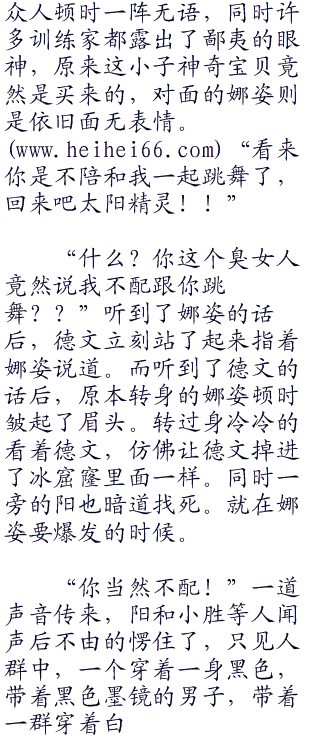 众人顿时一阵无语，同时许
多训练家都露出了鄙夷的眼
神，原来这小子神奇宝贝竟
然是买来的，对面的娜姿则
是依旧面无表情。
(www.heihei66.com)“看来
你是不陪和我一起跳舞了，
回来吧太阳精灵！！”
“什么？你这个臭女人
竟然说我不配跟你跳
舞？？”听到了娜姿的话
后，德文立刻站了起来指着
娜姿说道。而听到了德文的
话后，原本转身的娜姿顿时
皱起了眉头。转过身冷冷的
看着德文，仿佛让德文掉进
了冰窟窿里面一样。同时一
旁的阳也暗道找死。就在娜
姿要爆发的时候。
“你当然不配！”一道
声音传来，阳和小胜等人闻
声后不由的愣住了，只见人
群中，一个穿着一身黑色，
带着黑色墨镜的男子，带着
一群穿着白